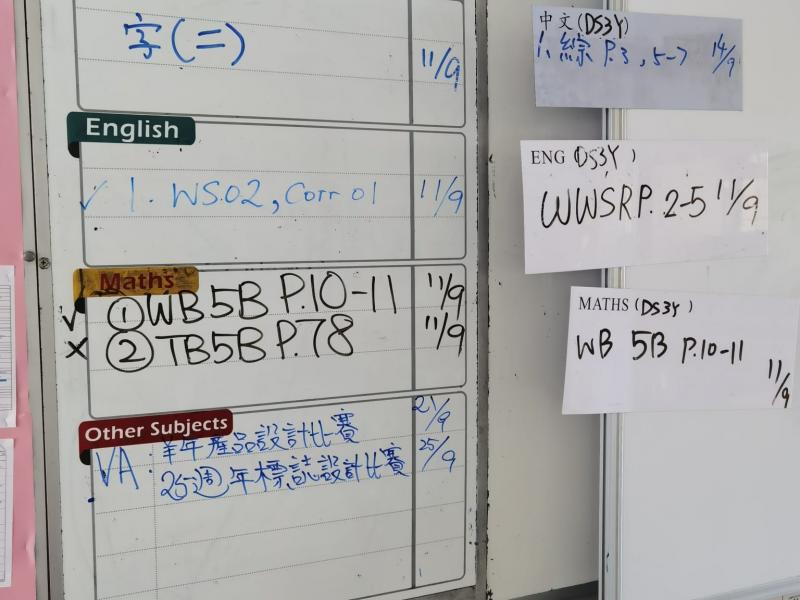 字(二) 11/9
English
✓ 1. WS.02, Corr 01 11/9
Maths
✓ ① WB5B P.10-11 11/9
× ② TB5B P.78 11/9
Other Subjects
VA: 羊年產品設計比賽 21/9
25週年標誌設計比賽 25/9
中文(DS3Y)
1. 綜 P.3, 5-7 14/9
ENG (DS3Y)
WWSRP. 2-5 11/9
MATHS (DS3Y)
WB 5B P.10-11
11/9